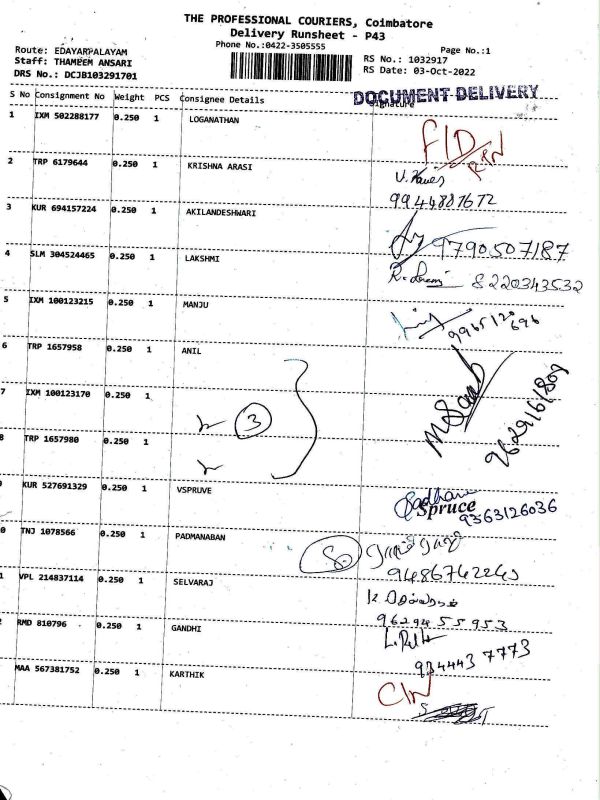 THE PROFESSIONAL COURIERS, Coimbatore
Delivery Runsheet - P43
Phone No.:0422-3505555
Page No.:1
Route: EDAYARPALAYAM
Staff: THAMEEM ANSARI
DRS No.: DCJB103291701
RS No.: 1032917
RS Date: 03-Oct-2022
DOCUMENT DELIVERY
S No Consignment No Weight PCS Consignee Details Signature
1 IXM 502288177 0.250 1 LOGANATHAN
2 TRP 6179644 0.250 1 KRISHNA ARASI
9944881672
3 KUR 694157224 0.250 1 AKILANDESHWARI
9790507187
4 SLM 304524465 0.250 1 LAKSHMI
8220343532
5 IXM 100123215 0.250 1 MANJU
9965120696
6 TRP 1657958 0.250 1 ANIL
7 IXM 100123170 0.250 1
3
9629161809
8 TRP 1657980 0.250 1
KUR 527691329 0.250 1 VSPRUVE
Spruce
9363126036
0 TNJ 1078566 0.250 1 PADMANABAN
1 VPL 214837114 0.250 1 SELVARAJ
9629455953
2 RMD 810796 0.250 1 GANDHI
934443 7773
MAA 567381752 0.250 1 KARTHIK